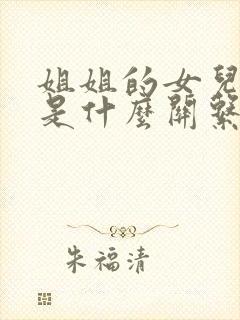 姐姐的女兒
是什麼關繫
朱福清